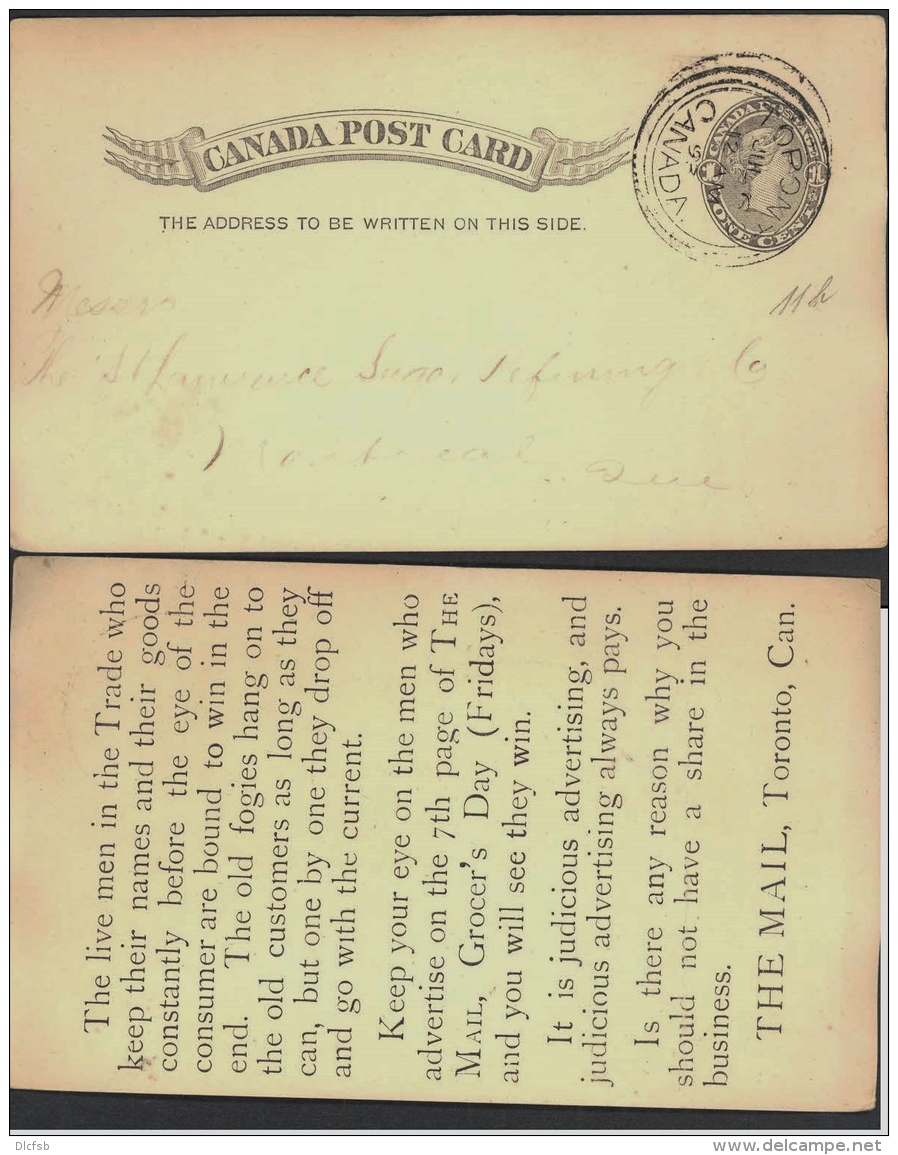 CANADA POST CARD
THE ADDRESS TO BE WRITTEN ON THIS SIDE.
CANADA
CANADA POSTAGE
ONE CENT
Messrs
The St Lawrence Sugar Refining Co
Montreal
Que
The live men in the Trade who
keep their names and their goods
constantly before the eye of the
consumer are bound to win in the
end. The old fogies hang on to
the old customers as long as they
can, but one by one they drop off
and go with the current.
Keep your eye on the men who
advertise on the 7th page of THE
MAIL, Grocer's Day (Fridays),
and you will see they win.
It is judicious advertising, and
judicious advertising always pays.
Is there any reason why you
should not have a share in the
business.
THE MAIL, Toronto, Can.
Dlcfsb
www.delcampe.net